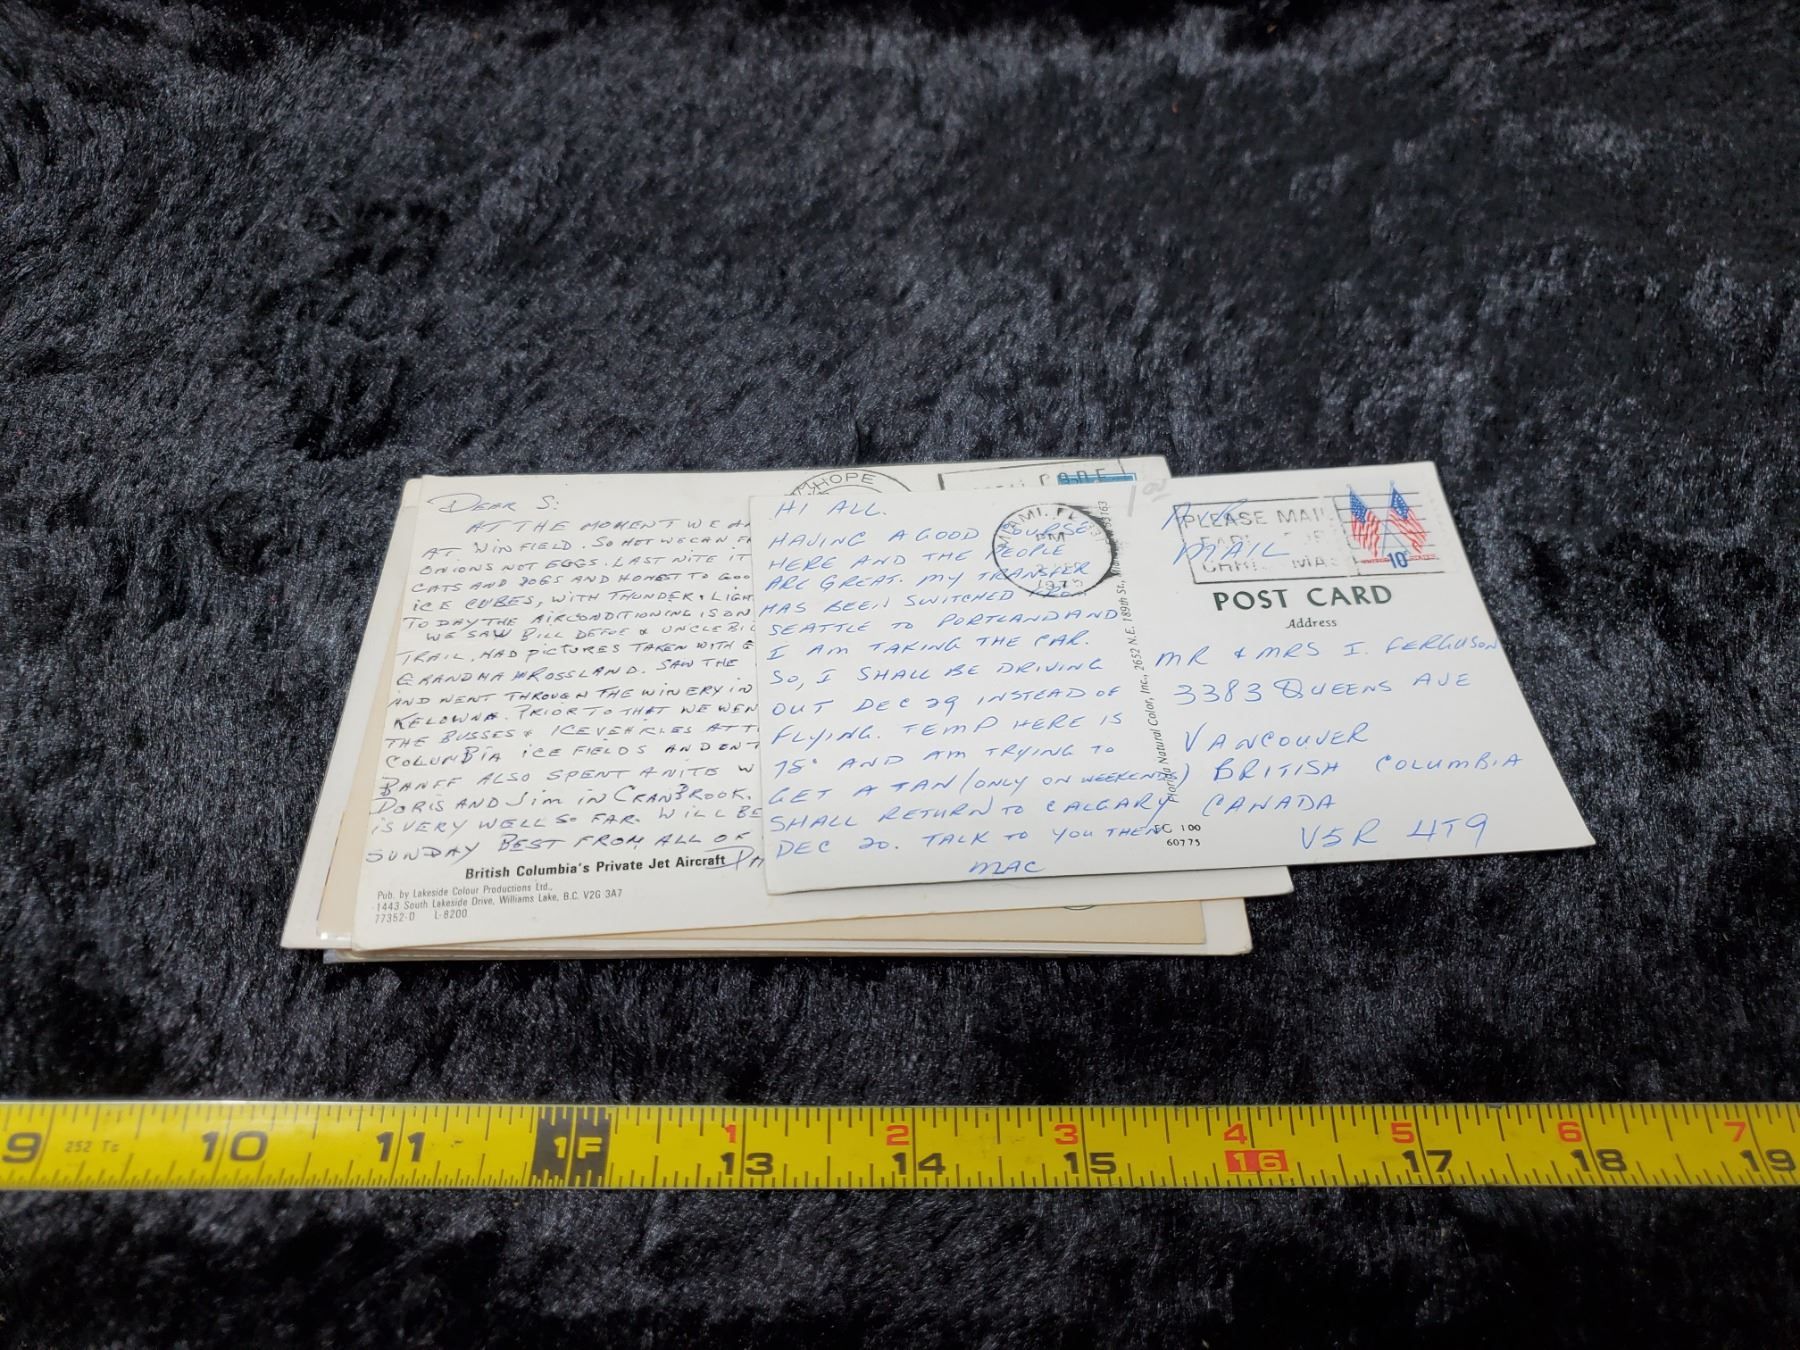 DEAR S:
AT THE MOMENT WE A
AT WINFIELD. SO HOT WE CAN F
ONIONS NOT EGGS. LAST NITE IT
CATS AND DOGS AND HONEST TO GOO
ICE CUBES, WITH THUNDER & LIGH
TODAY THE AIRCONDITIONING IS ON
WE SAW BILL DEFOE & UNCLE BIL
TRAIL. HAD PICTURES TAKEN WITH E
GRANDMA ROSSLAND. SAW THE
AND WENT THROUGH THE WINERY IN
KELOWNA. PRIOR TO THAT WE WEN
THE BUSSES & ICEVEHICLES AT T
COLUMBIA ICE FIELDS AND ENT
BANFF ALSO SPENT A NITE W
DORIS AND JIM IN CRANBROOK.
IS VERY WELL SO FAR. WILL BE
SUNDAY BEST FROM ALL OF
British Columbia's Private Jet Aircraft
Pub. by Lakeside Colour Productions Ltd.,
1443 South Lakeside Drive, Williams Lake, B.C. V2G 3A7
77352-D L-8200
HOPE
CODE
HI ALL.
HAVING A GOOD COURSE
HERE AND THE PEOPLE
ARE GREAT. MY TRANSFER
HAS BEEN SWITCHED FROM
SEATTLE TO PORTLAND AND
I AM TAKING THE CAR.
SO, I SHALL BE DRIVING
OUT DEC 29 INSTEAD OF
FLYING. TEMP HERE IS
75° AND AM TRYING TO
GET A TAN (ONLY ON WEEKENDS)
SHALL RETURN TO CALGARY
DEC 20. TALK TO YOU THEN
MAC
MIAMI, FL
PM
1975
Florida Natural Color, Inc., 2652 N.E. 189th St.,
FC 100
60775
MAIL
PLEASE MAIL
10¢
POST CARD
Address
MR & MRS I. FERGUSON
3383 QUEENS AVE
VANCOUVER
BRITISH COLUMBIA
CANADA
V5R 4T9
1 2 3 4 5 6 7
9 10 11 1F 13 14 15 16 17 18 19